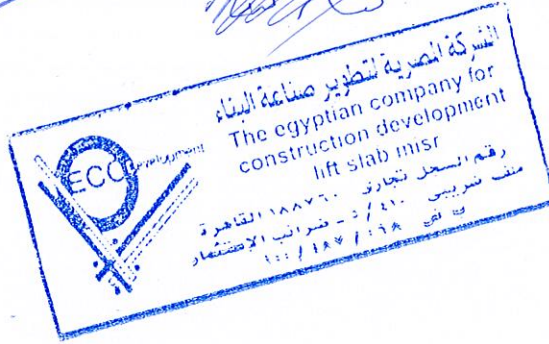 الشركة المصرية لتطوير صناعة البناء
The egyptian company for
construction development
lift slab misr
ECC
Development
رقم السجل تجارى ١٨٨٧٦٠ القاهرة
ملف ضريبى ٥/٤١٠ - ضرائب الإستثمار
١٠٠ / ١٨٧ / ١٩٨